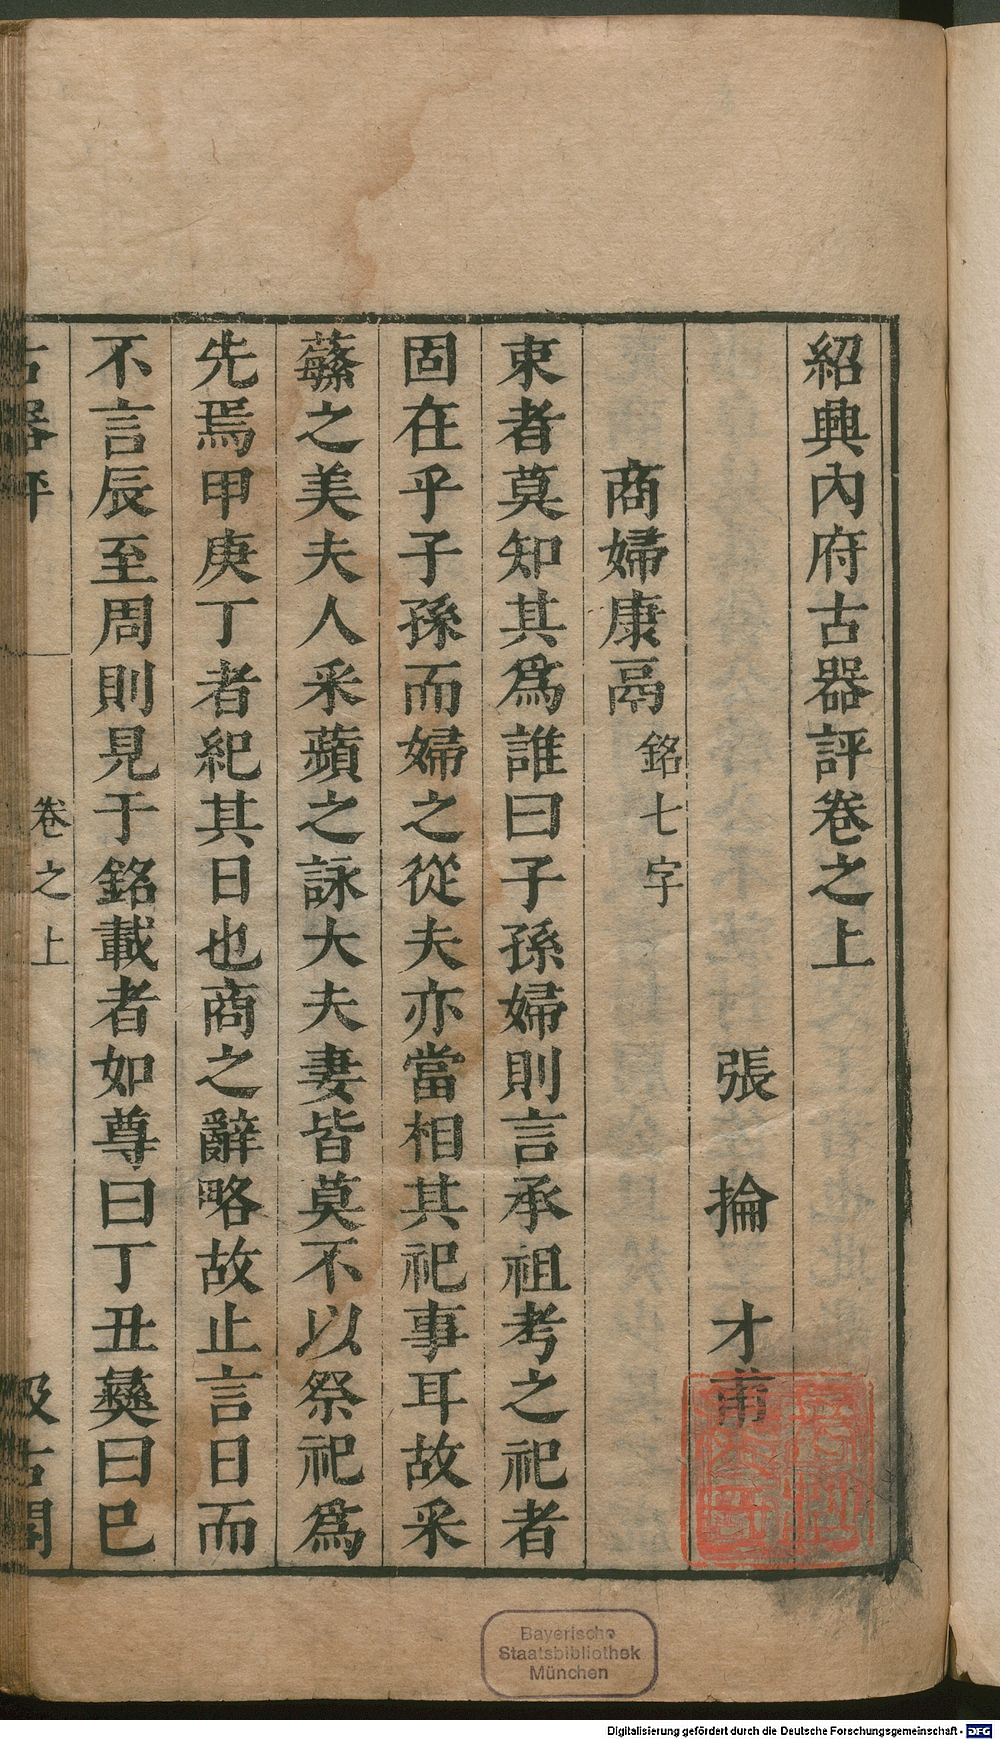 紹興內府古器評卷之上
張掄才甫
商婦康鬲 銘七字
朿者莫知其爲誰曰子孫婦則言承祖考之祀者
固在乎子孫而婦之從夫亦當相其祀事耳故采
蘩之美夫人采蘋之詠大夫妻皆莫不以祭祀爲
先焉甲庚丁者紀其日也商之辭略故止言日而
不言辰至周則見于銘載者如尊曰丁丑彝曰巳
古器評 卷之上 汲古閣
Bayerische
Staatsbibliothek
München
Digitalisierung gefördert durch die Deutsche Forschungsgemeinschaft - DFG